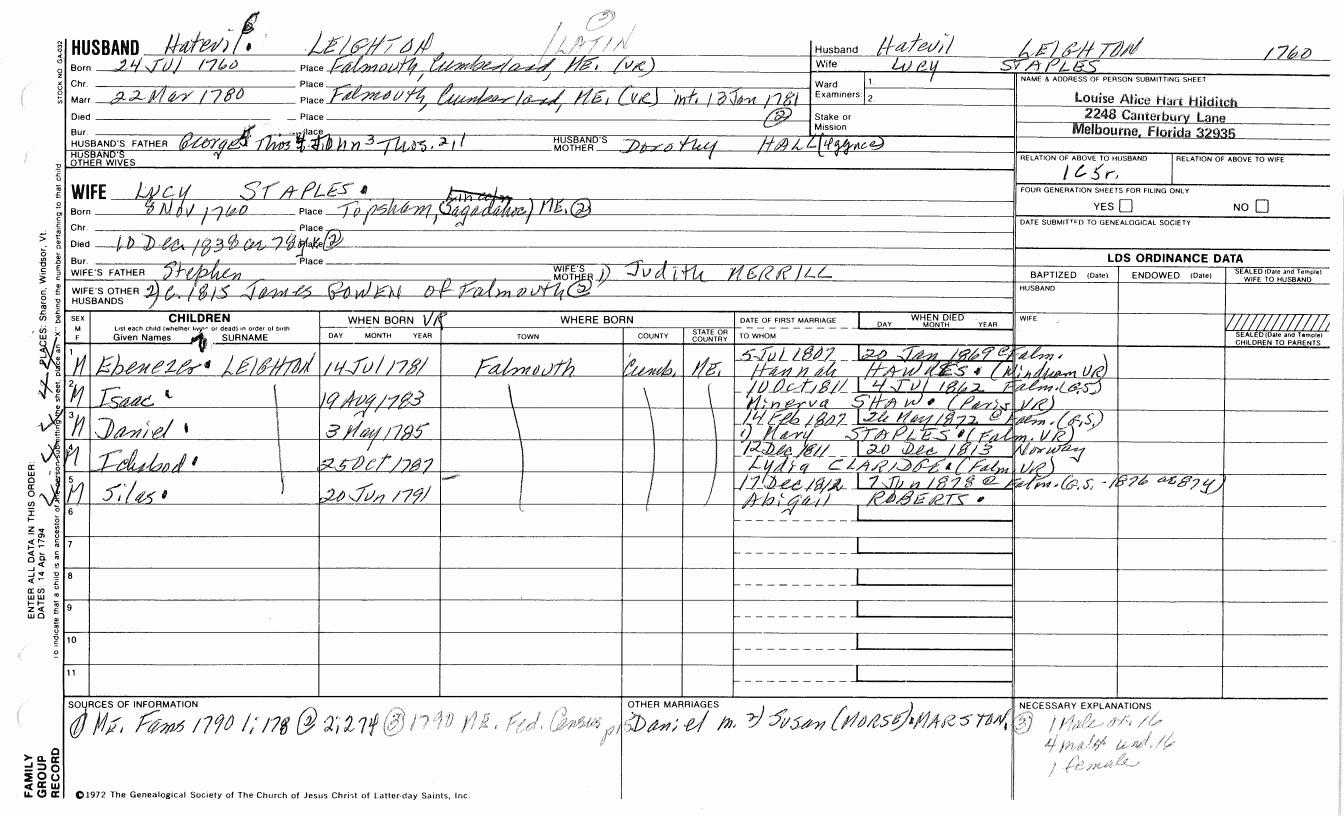 ③
HUSBAND Hatevil 6. LEIGHTON 1 LATIN
Born 24 JUL 1760 Place Falmouth, Cumberland, ME. (VR)
Chr. Place
Marr 22 Mar 1780 Place Falmouth, Cumberland, ME. (VR) int. 13 Jan 1781
Died Place ②
Bur. Place
HUSBAND'S FATHER George 5 Thos 4 John 3 Thos. 2,1 HUSBAND'S MOTHER Dorothy HALL
HUSBAND'S OTHER WIVES
Husband Hatevil LEIGHTON 1760
Wife Lucy STAPLES
Ward Examiners 1
2
Stake or Mission
NAME & ADDRESS OF PERSON SUBMITTING SHEET
Louise Alice Hart Hilditch
2248 Canterbury Lane
Melbourne, Florida 32935
RELATION OF ABOVE TO HUSBAND RELATION OF ABOVE TO WIFE
1C5r.
FOUR GENERATION SHEETS FOR FILING ONLY
YES NO
DATE SUBMITTED TO GENEALOGICAL SOCIETY
WIFE Lucy STAPLES.
Lincoln
Born 8 Nov 1760 Place Topsham, (Sagadahoc) ME. ②
Chr. Place
Died 10 Dec. 1838 ae 78y Place ②
Bur. Place
WIFE'S FATHER Stephen WIFE'S MOTHER 1) Judith MERRILL
WIFE'S OTHER HUSBANDS 2) c. 1815 James BOWEN of Falmouth ②
LDS ORDINANCE DATA
BAPTIZED (Date) ENDOWED (Date) SEALED (Date and Temple) WIFE TO HUSBAND
HUSBAND
WIFE
SEALED (Date and Temple) CHILDREN TO PARENTS
SEX M F CHILDREN List each child (whether living or dead) in order of birth Given Names 7 SURNAME
WHEN BORN VR DAY MONTH YEAR
WHERE BORN TOWN COUNTY STATE OR COUNTRY
DATE OF FIRST MARRIAGE TO WHOM
WHEN DIED DAY MONTH YEAR
1 M Ebenezer. LEIGHTON 14 Jul 1781 Falmouth Cumb. ME. 5 Jul 1807 20 Jan 1869 @ Falm.
Hannah HAWKES. (Windham VR)
2 M Isaac 19 Aug 1783 10 Oct 1811 4 Jul 1862 Falm. (G.S)
Minerva SHAW. (Paris VR)
3 M Daniel. 3 May 1785 14 Feb 1807 26 May 1872 @ Falm. (G.S.)
1) Mary STAPLES. (Falm. VR)
4 M Ichabod. 25 Oct 1787 12 Dec 1811 20 Dec 1813 Norway
Lydia CLARIDGE. (Falm VR)
5 M Silas. 20 Jun 1791 17 Dec 1812 7 Jun 1878 @ Falm. (G.S. -1876 ae 84y)
Abigail ROBERTS.
6
7
8
9
10
11
SOURCES OF INFORMATION
① ME. Fams 1790 1:178 ② 2:274 ③ 1790 ME. Fed. Census
OTHER MARRIAGES
Daniel m. 2) Susan (MORSE). MARSTON.
NECESSARY EXPLANATIONS
③ 1 Male ov. 16
4 males und. 16
1 female
©1972 The Genealogical Society of The Church of Jesus Christ of Latter-day Saints, Inc.
STOCK NO. GA-032
ENTER ALL DATA IN THIS ORDER:
DATES 14 Apr 1794 PLACES: Sharon, Windsor, Vt.
To indicate that a child is an ancestor of the person submitting the sheet, place an "X" behind the number pertaining to that child
FAMILY GROUP RECORD